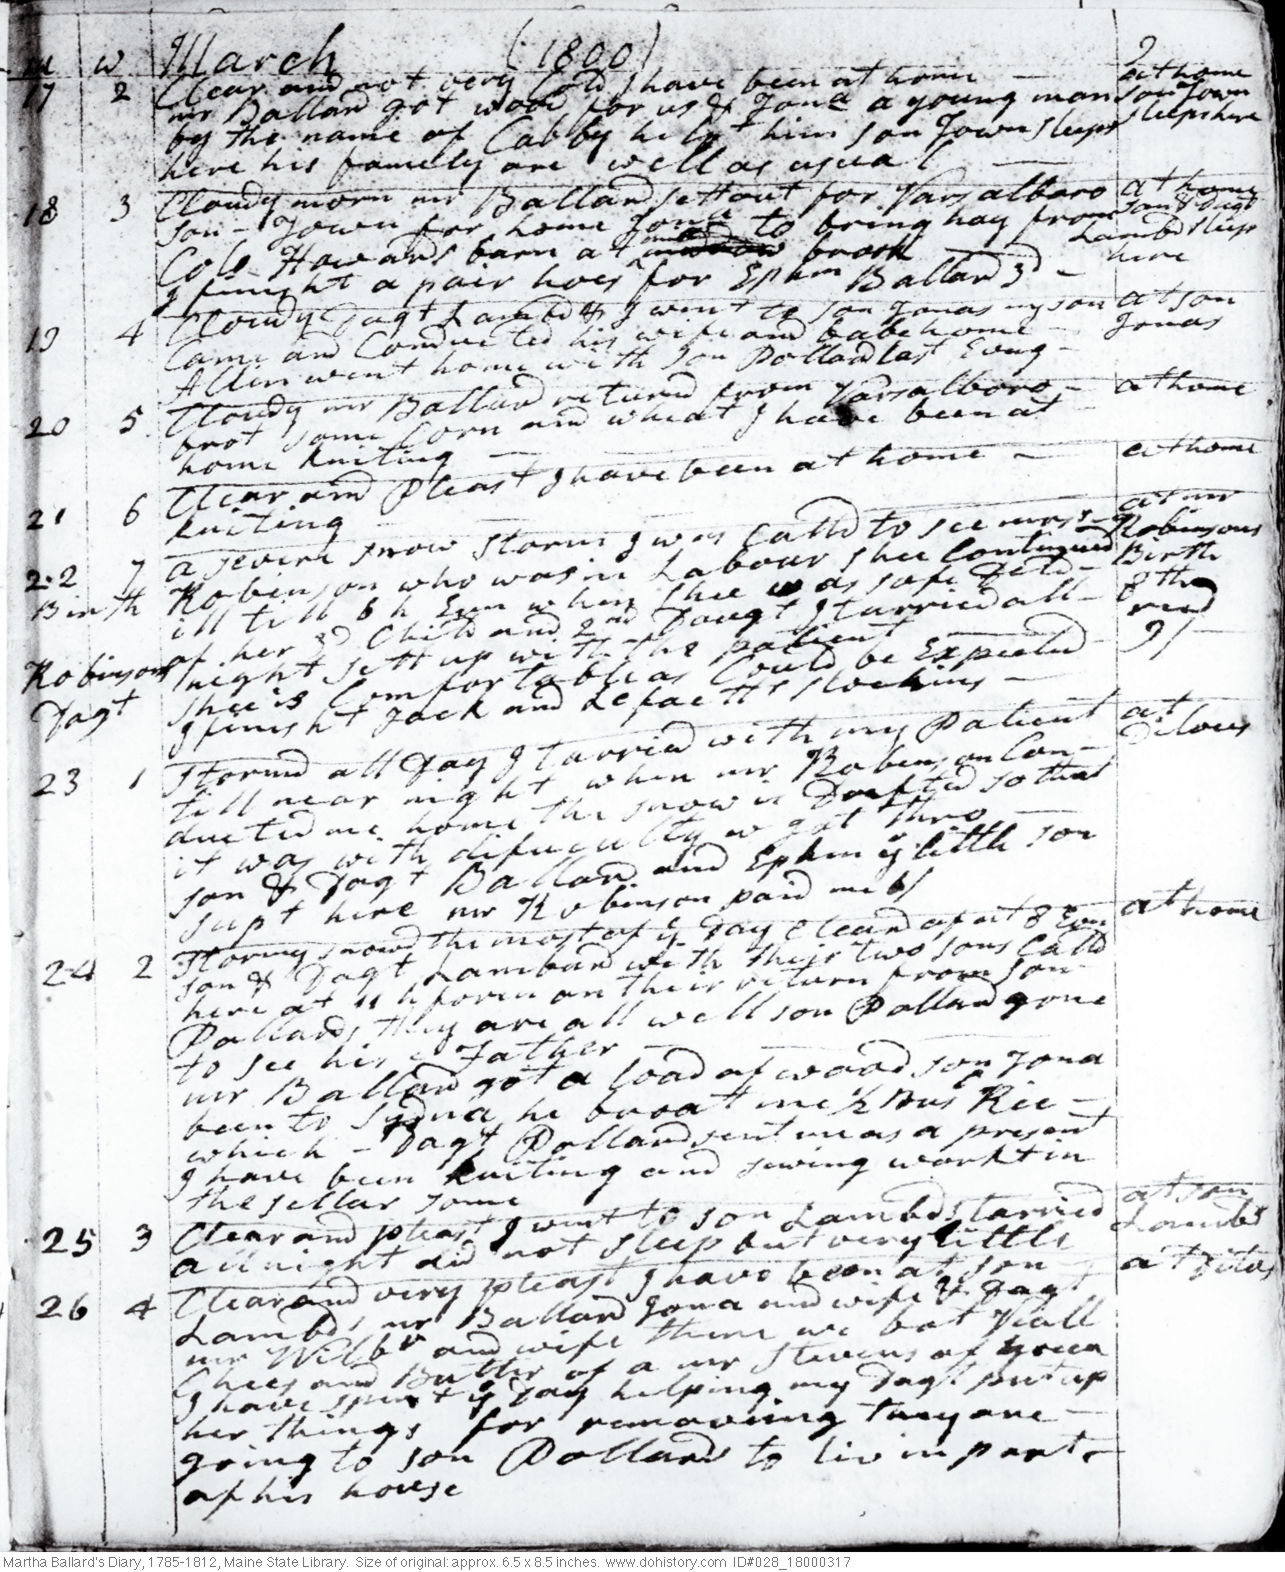 m w March (1800) 9
17 2 Clear and not very Cold I have been at home at home
mr Ballard got wood for us & Jona a young man son Town
by the name of Cabby helpt him son Town sleeps sleeps here
here his famely are well as usual
18 3 Cloudy morn mr Ballard sett out for Varsalboro at home
son Town for home Jona to bring hay from son & Dagt
Cols Howards barn at brook Lambd sleep
I finisht a pair hoes for Ephm Ballard 3d here
19 4 Cloudy Dagt Lambd & I went to son Jonas my son at son
Came and Conducted his wife and babe home Jonas
Allin went home with son Pollard last Evng
20 5 Cloudy mr Ballard returnd from Varsalboro at home
brot some Corn and wheat I have been at
home kniting
21 6 Clear and Pleast I have been at home at home
kniting
22 7 a severe snow storm I was Calld to see mrss at mr
Birth Robinson who was in Labour shee Continued Robinsons
ill till 6 h Evn when shee was safe Deld Birth
of her 3d Child and 2nd Dagt I tarried all 8th
Robinsons night sett up with the patient recd
Dagt shee is Comfortable as Could be Expected 9/
I finisht Jack and Lefaetts stockins
23 1 stormd all Day I tarried with my Patient at
till near night when mr Robinson Con- Ditoes
ducted me home the snow is Drifted so that
it was with dificulty w got thro
son & Dagt Ballard and Ephm & little son
supt here mr Robinson paid me 6/
24 2 Stormy snowd the most of ye Day Cleard of at 8 Evn at home
son & Dagt Lambard with their two sons Calld
here at 11 h foren on their return from son
Pollards they are all well son Pollard gone
to see his Father
mr Ballard got a load of wood son Jona
been to Sydna he broat me ½ Bus Rie
which Dagt Pollard sent me as a present
I have been kniting and sewing workt in
the sellar some
25 3 Clear and pleast I went to son Lambds tarried at son
all night did not sleep but very little Lambds
26 4 Clear and very pleast I have been at son at Ditos
Lambds, mr Ballard Jona and wife & Dagt
mr Wilbr and wife there we bot Veall
Chees and Butter of a mr Stevens of Green
I have spent ye Day helping my Dagt put up
her things for removeing they are
going to son Pollards to liv in part
of his house
Martha Ballard's Diary, 1785-1812, Maine State Library. Size of original: approx. 6.5 x 8.5 inches. www.dohistory.com ID#028_18000317